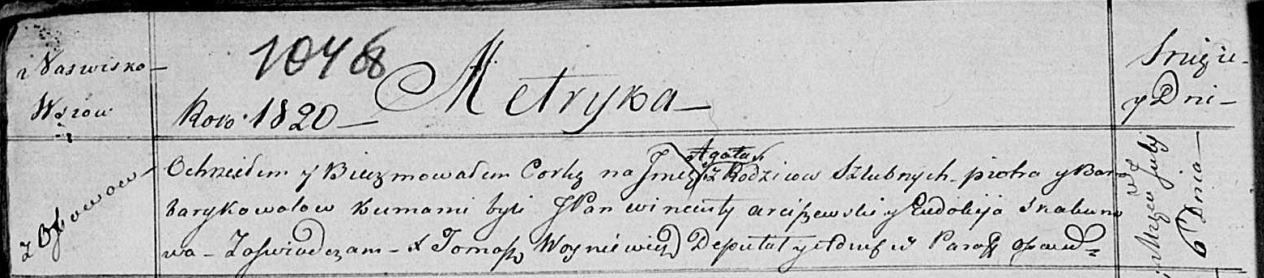 i Naswisko
Wsiow
10468
Roku 1820 Metryka
y Dni
z Osowow
Ochrzciłem y Bierzmowałem Corkę na Jmię Agata z Rodzicow Szlubnych piotra y Bar
bary kowalow kumami byli JPan wincenty arciszewski y Eudokija skakuno
wa - Zaświadczam - X Tomasz Woyniewicz Deputat
Mrzca julij
6 Dnia